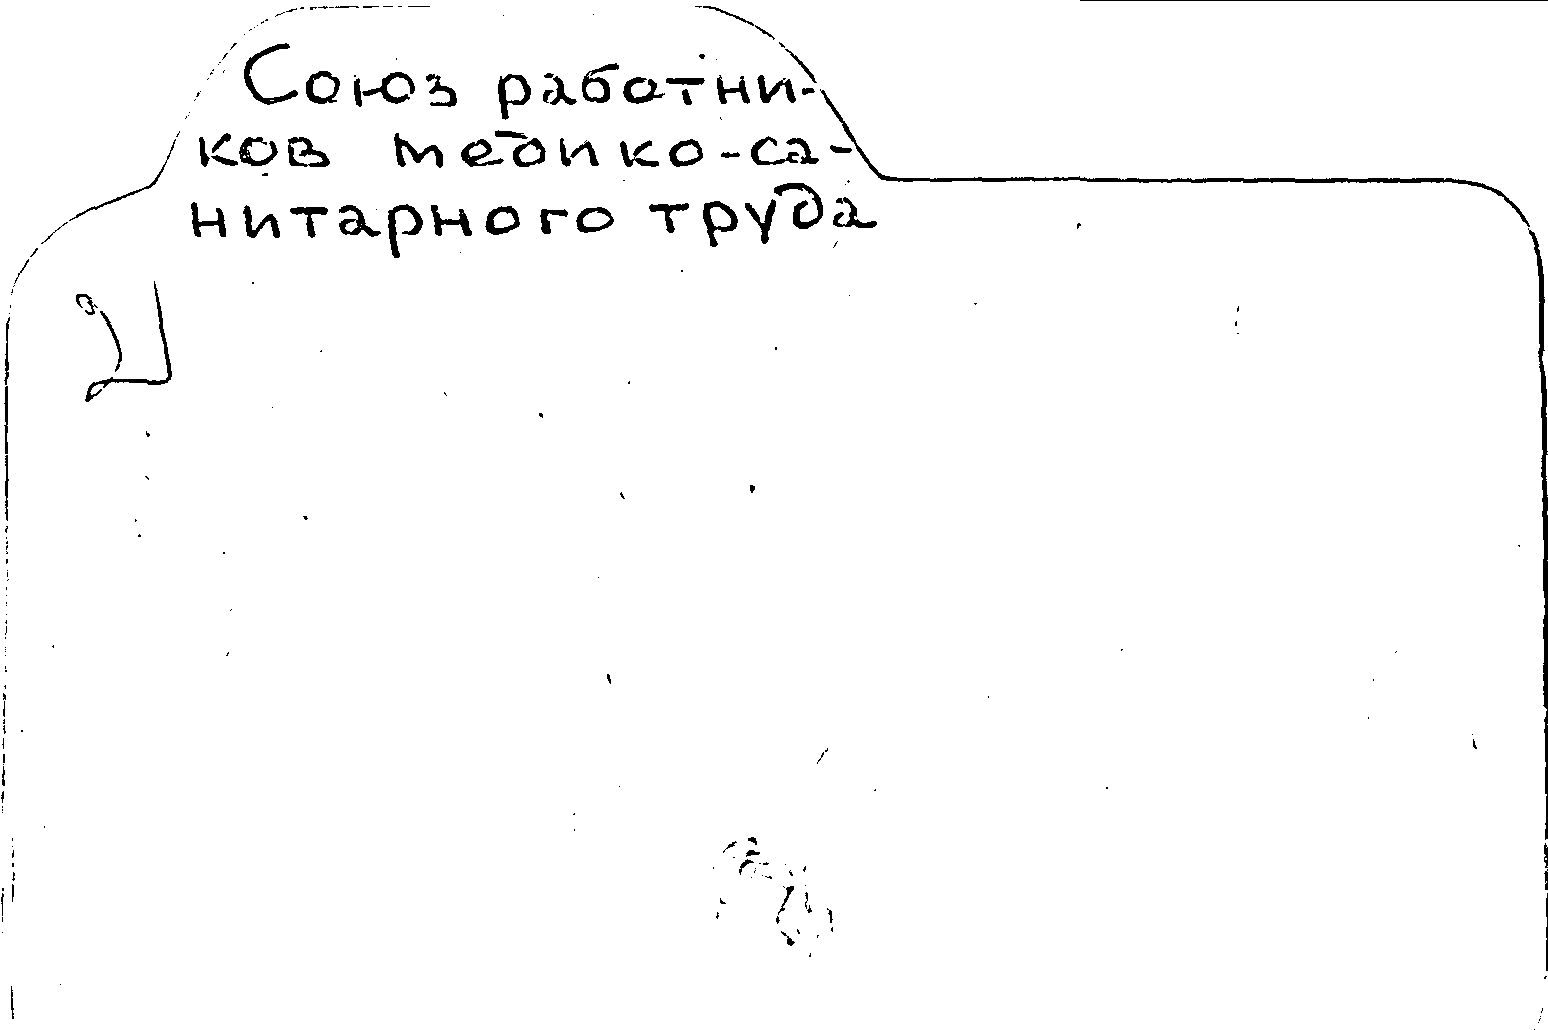 Союз работни-
ков медико-са-
нитарного труда
21